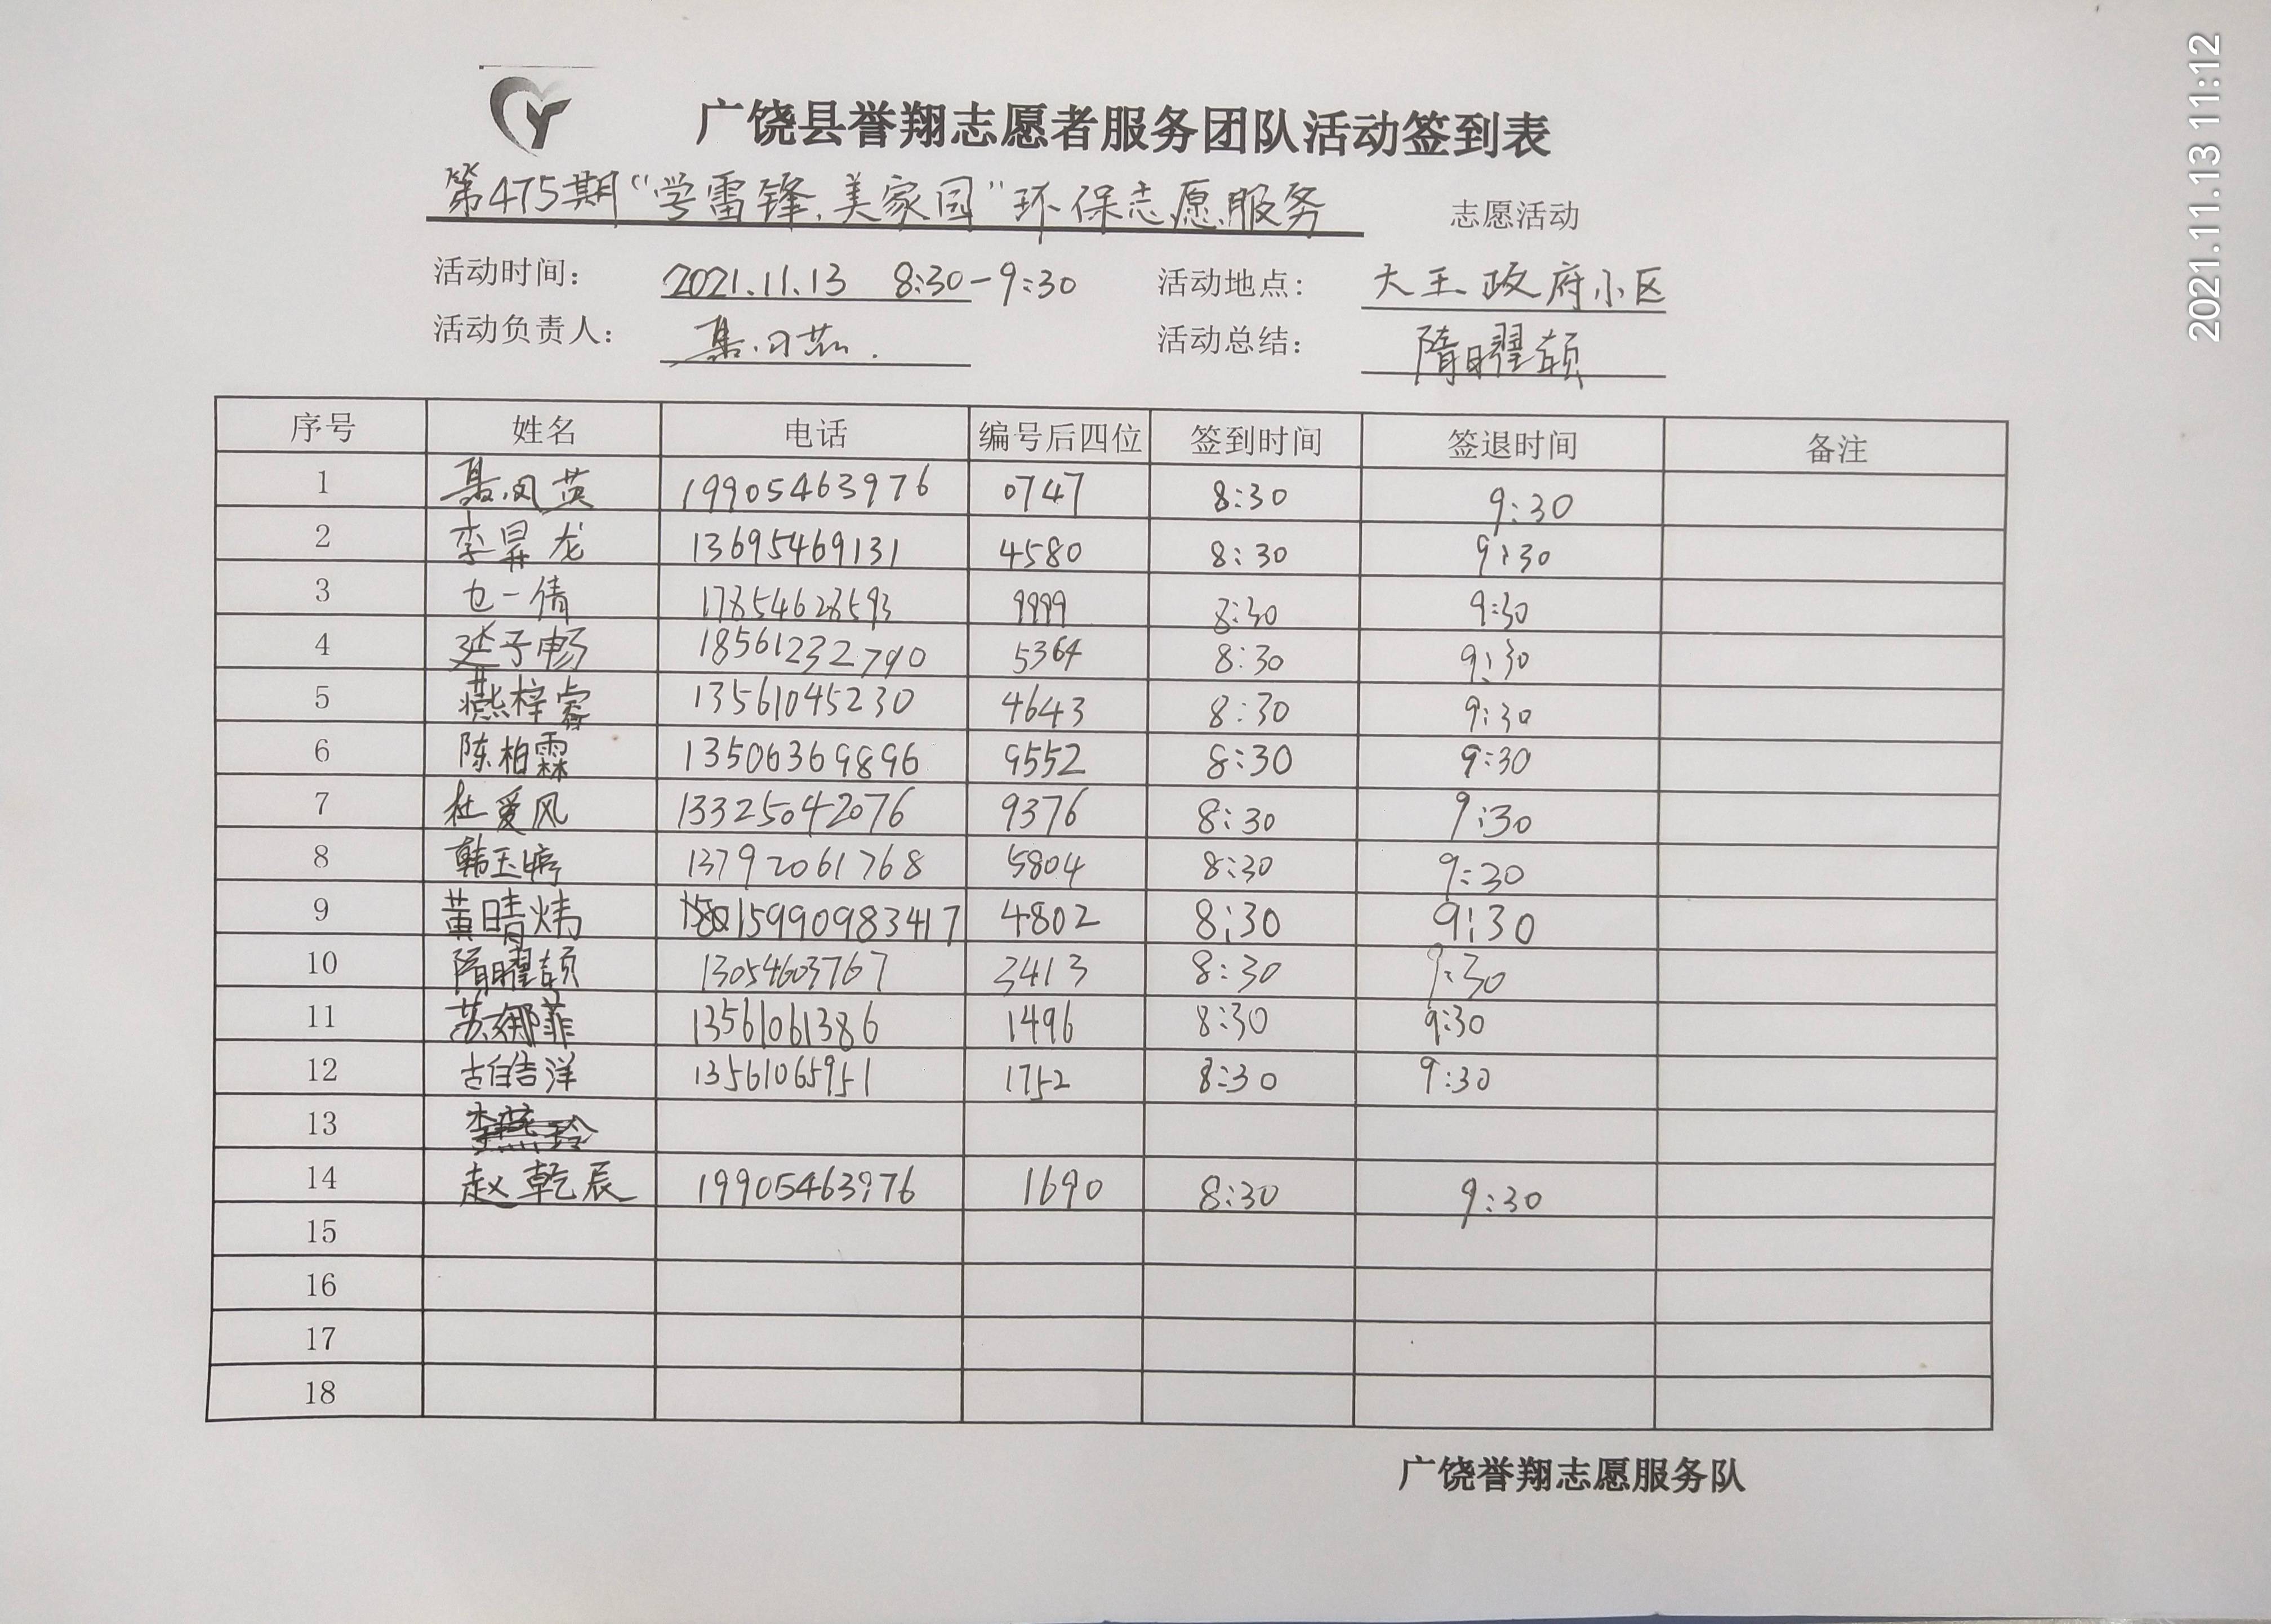 2021.11.13 11:12
广饶县誉翔志愿者服务团队活动签到表
第475期“学雷锋.美家园”环保志愿服务 志愿活动
活动时间： 2021.11.13 8:30-9:30 活动地点： 大王政府小区
活动负责人： 活动总结： 隋曜颉
序号 姓名 电话 编号后四位 签到时间 签退时间 备注
1 聂风英 19905463976 0747 8:30 9:30
2 李昇龙 13695469131 4580 8:30 9:30
3 一倩 17854628593 9999 8:30 9:30
4 延子畅 18561232790 5364 8:30 9:30
5 燕梓睿 13561045230 4643 8:30 9:30
6 陈柏霖 13506369896 9552 8:30 9:30
7 杜爱风 13325042076 9376 8:30 9:30
8 韩玉婷 13792061768 5804 8:30 9:30
9 黄晴炜 15990983417 4802 8:30 9:30
10 隋曜颉 13054603767 3413 8:30 9:30
11 苏娜菲 13561061386 1496 8:30 9:30
12 古皓洋 13561065951 1752 8:30 9:30
13 李燕玲
14 赵乾辰 19905463976 1690 8:30 9:30
15
16
17
18
广饶誉翔志愿服务队